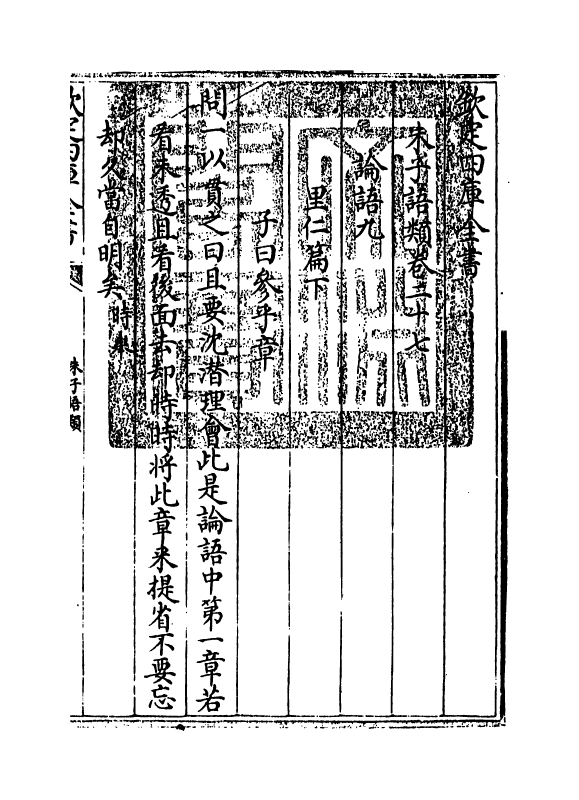 欽定四庫全書
朱子語類卷二十七
論語九
里仁篇下
子曰參乎章
問一以貫之曰且要沈潛理會此是論語中第一章若
看未透且看後面去却時時將此章來提省不要忘
却久當自明矣時舉
欽定四庫全書
朱子語類